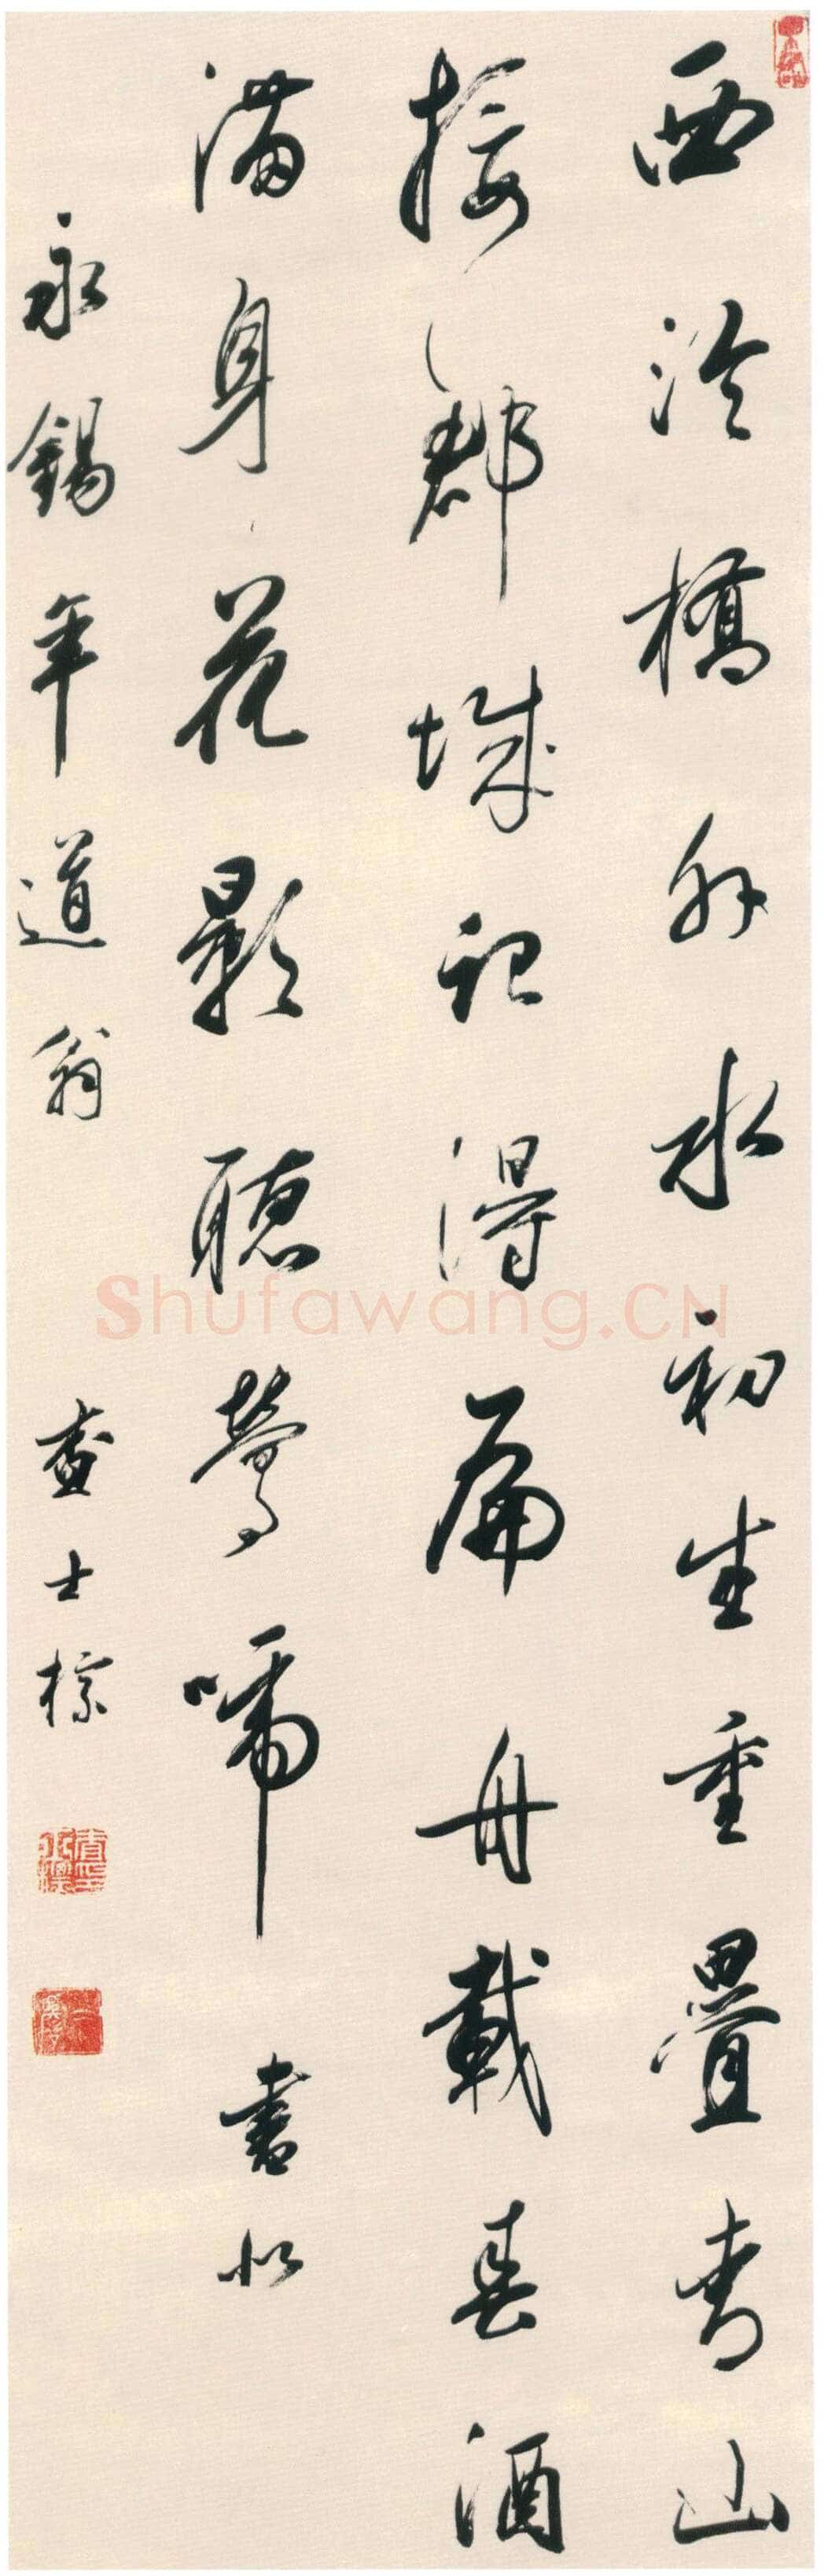 西泠橋外水初生重疊青山
接郡城記得扁舟載春酒
滿身花影聽鶯啼 書似
永錫年道翁 查士標
Shufawang.CN